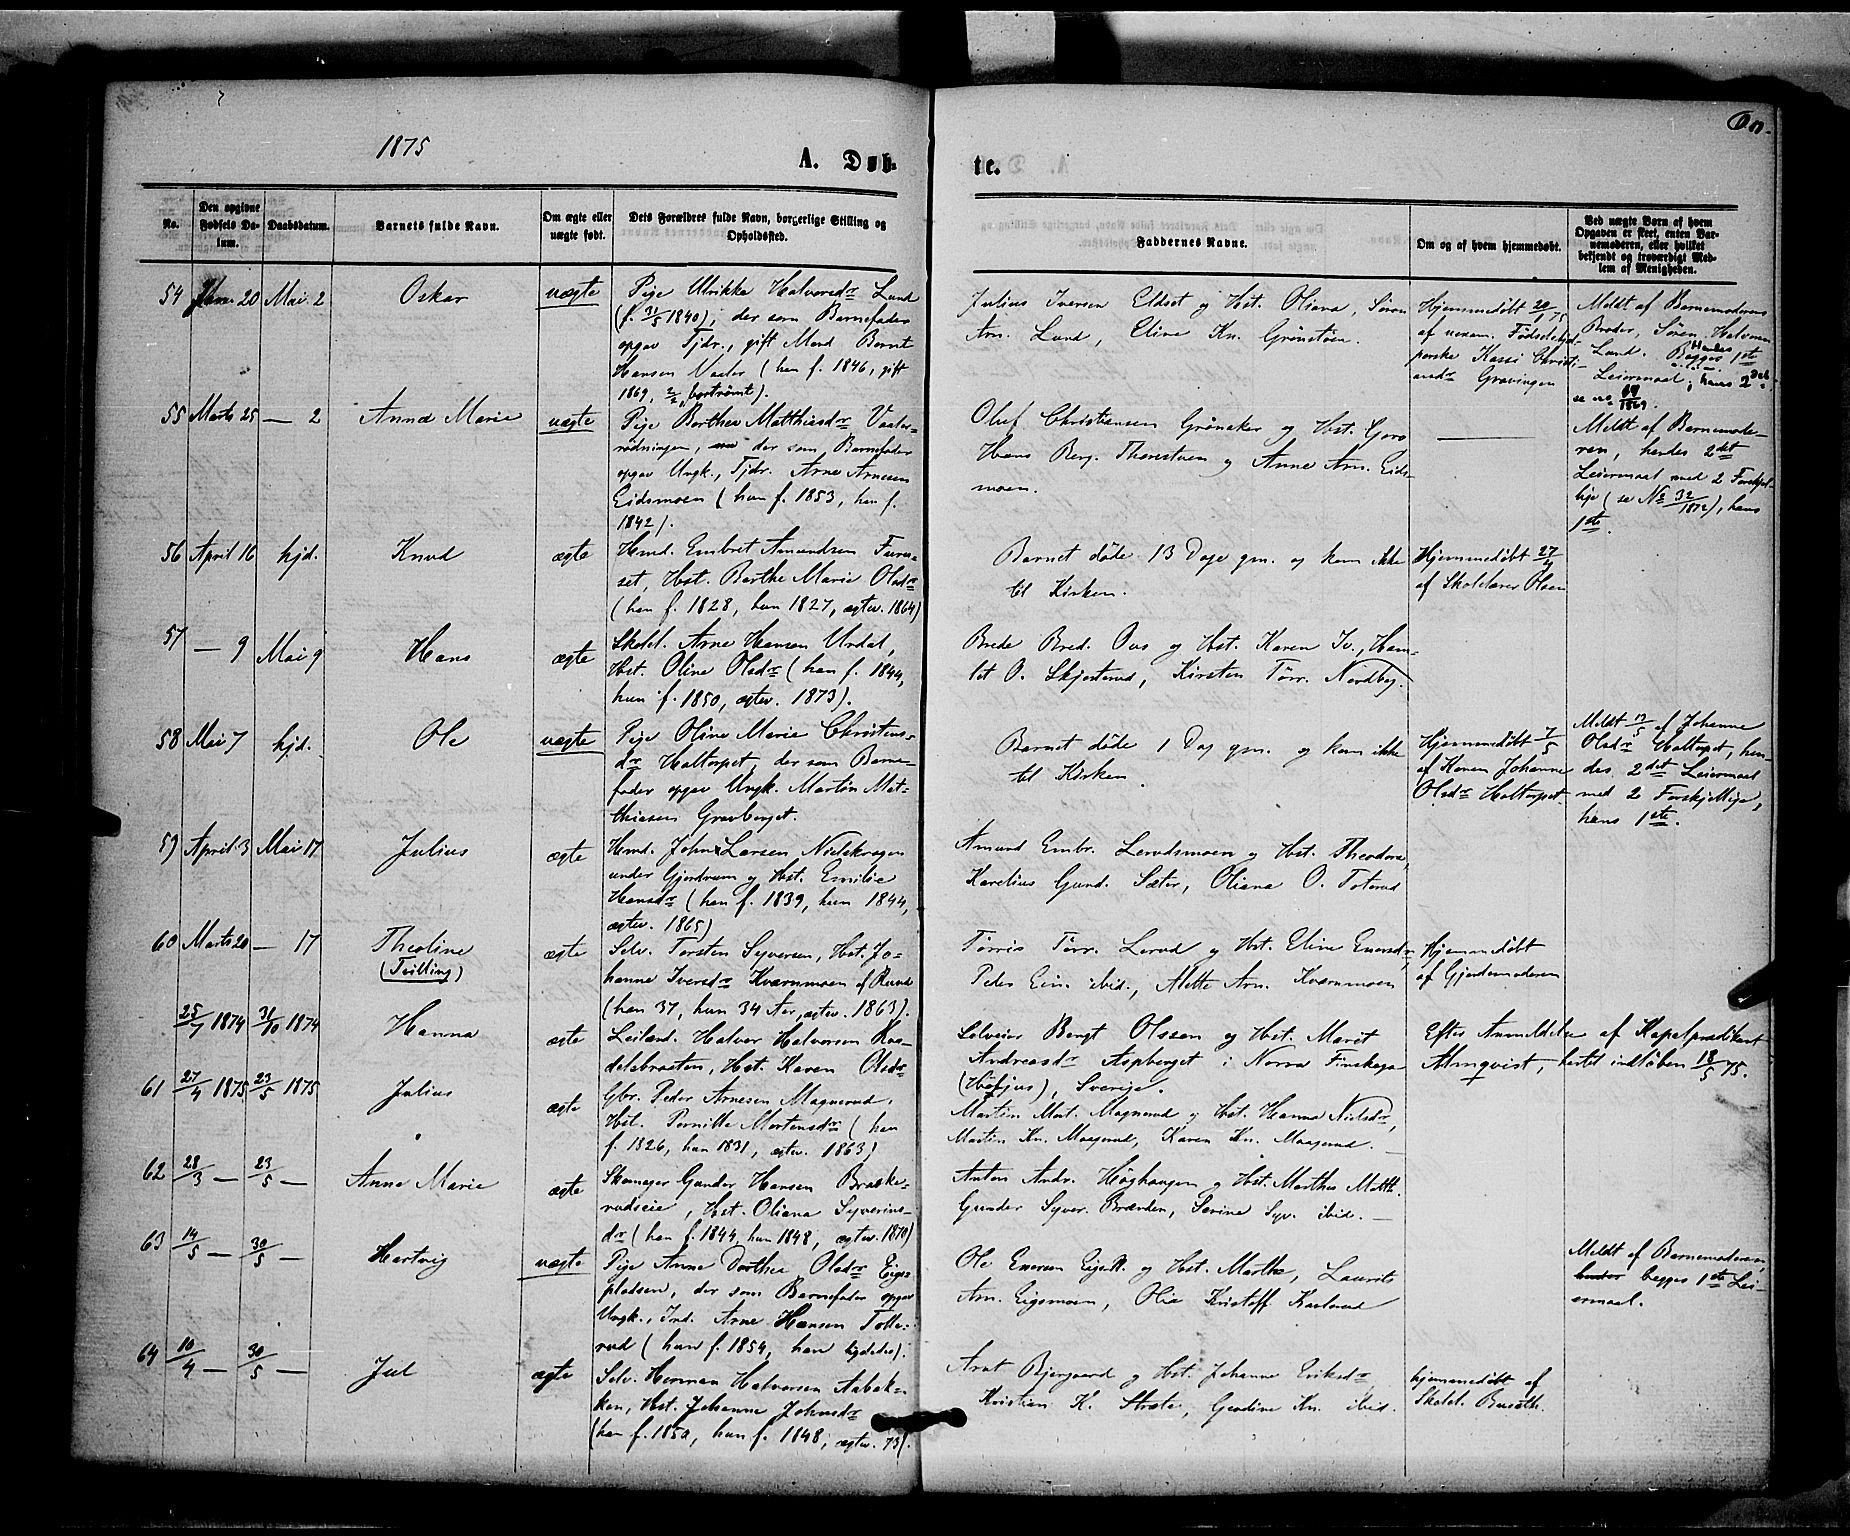 1875
A. Døb-
te.
No.
Den opgivne Fødsels Da-
tum.
Daabsdatum.
Barnets fulde Navn.
Om ægte eller uægte født.
Dets Forældres fulde Navn, borgerlige Stilling og Opholdssted.
Faddernes Navne.
Om og af hvem hjemmedøbt.
Ved uægte Børn af hvem
Opgaven er skeet, enten Bar-
nemoderen, eller hvilket
bekjendt og troværdigt Med-
lem af Menigheden.
54 20 Mai 2 Oskar uægte
Pige Ulrikke Halvorsdr Lund
(f. 31/5 1840), der som Barnefader
opgav Tjdr., gift Mand Bernt
Hansen Vaaler (han f. 1846, gift
1869, bortrømt).
Julius Iversen Eldset og Hst. Oliana, Søren
Arn. Lund, Eline Kn. Grønstøen.
Hjemmedøbt 20/1 75
af uexam. Fødselshjel-
perske Kassi Christi-
ansdr Gravingen
Meldt af Barnemoderens
Broder, Søren Halvorsen
Lund. Hendes 1ste
Leiermaal, hans 2det
se no 69/1869.
55 Marts 25 — 2 Anne Marie uægte
Pige Berthea Matthiasdr Vaaler-
rødningen, der som Barnefader
opgav Ungk., Tjdr. Arne Arnesen
Eidsmoen (hun f. 1853, han f.
1842).
Oluf Christiansen Grønaker og Hst. Goro
Hans Berg. Thorestuen og Anne Arn. Eids-
moen.
Meldt af Barnemode-
ren, hendes 2det
Leiermaal med 2 Forskjel-
lige (se No 32/1872), hans
1ste.
56 April 16 hjd. Knud ægte
Hmd. Embret Amundsen Furu-
set, Hst. Berthe Marie Olsdr
(han f. 1828, hun 1827, egtev. 1864)
Barnet døde 13 Dage gm. og kom ikke
til Kirken.
Hjemmedøbt 27/4
af Skolelærer Olsen
57 — 9 Mai 9 Hans ægte
Skolel. Arne Hansen Urdal,
Hst. Oline Olsdr (han f. 1844,
hun f. 1850, egtev. 1873).
Brede Bred. Ovs og Hst. Karen Iv., Ham-
let O. Skjesterud, Kirsten Tørr. Nordby.
58 Mai 7 hjd. Ole uægte
Pige Oline Marie Christens-
dr Holtorpet, der som Barne-
fader opgav Ungk. Martin Mat-
thiasen Gravberget.
Barnet døde 1 Dag gm. og kom ikke
til Kirken
Hjemmedøbt 7/5
af Karen Johanne
Olsdr Holtorpet
Meldt 13/5 af Johanne
Olsdr Holtorpet, hen-
des 2det Leiermaal
med 2 Forskjellige,
hans 1ste.
59 April 3 Mai 17 Julius ægte
Hmd. John Larsen Nielskrogen
under Gjerdrum og Hst. Emilie
Hansdr (han f. 1839, hun 1844,
egtev. 1865)
Amund Embr. Lerudsmoen og Hst. Theodora,
Karelius Gund. Sæter, Oliana O. Toterud
60 Marts 20 — 17 Theoline
(Tvilling) ægte
Selv. Torsten Syversen, Hst. Jo-
hanne Iversdr Kvernmoen af Rund
(han 37, hun 34 Aar, egtev. 1863).
Tørris Tørr. Lerud og Hst. Eline Enersdr,
Peder Ein. ibid., Alette Arn. Kvernmoen
Hjemmedøbt
af Gjordemoderen
25/7 1874 31/10 1874 Hanna ægte
Leiland. Halvor Halvorsen Kva-
delsbraaten, Hst. Karen Olsdr
Selveier Bengt Olssen og Hst. Marit
Andreasdr Aspberget i Norra Finskoga
(Höljus), Sverige.
Efter Anmeldelse af Kapelpredikant
Almqvist, hertil indløben 18/5 75.
61 27/4 1875 23/5 1875 Julius ægte
Gbr. Peder Arnesen Magnerud,
Hst. Pernille Mortensdr (han
f. 1826, hun 1831, egtev. 1863)
Martin Mat. Magnerud og Hst. Hanna Nielsdr,
Martin Kn. Maagerud, Karen Kn. Maagerud. —
62 28/3 — 23/5 — Anne Marie ægte
Skomager Gunder Hansen Braske-
rudseie, Hst. Oliana Syverins-
dr (han f. 1844, hun 1848, egtev. 1870)
Anton Andr. Høghaugen og Hst. Marthea Matth.
Gunder Syver. Brænden, Sevine Syv. ibid. —
63 14/5 — 30/5 — Hartvig uægte
Pige Anne Dorthea Olsdr Eigs-
pladsen, der som Barnefader opgav
Ungk., Ind. Arne Hansen Tolle-
rud (hun f. 1854, han ligedes).
Ole Enersen og Hst. Marthe, Laurits
Arn. Eigsmoen, Olia Kristoff. Kaslerud
Meldt af Barnemoderen,
begges 1ste Lei-
ermaal.
64 10/4 — 30/5 — Jul ægte
Selv. Herman Halvorsen Aabak-
ken, Hst. Johanne Johnsdr
(han f. 1850, hun f. 1848, egtev. 73).
Arnt Bjergaard og Hst. Johanne Eriksdr
Kristian K. Stræte, Gerdine Kn. ibid.
hjemmedøbt af
Skolel. Buseth.